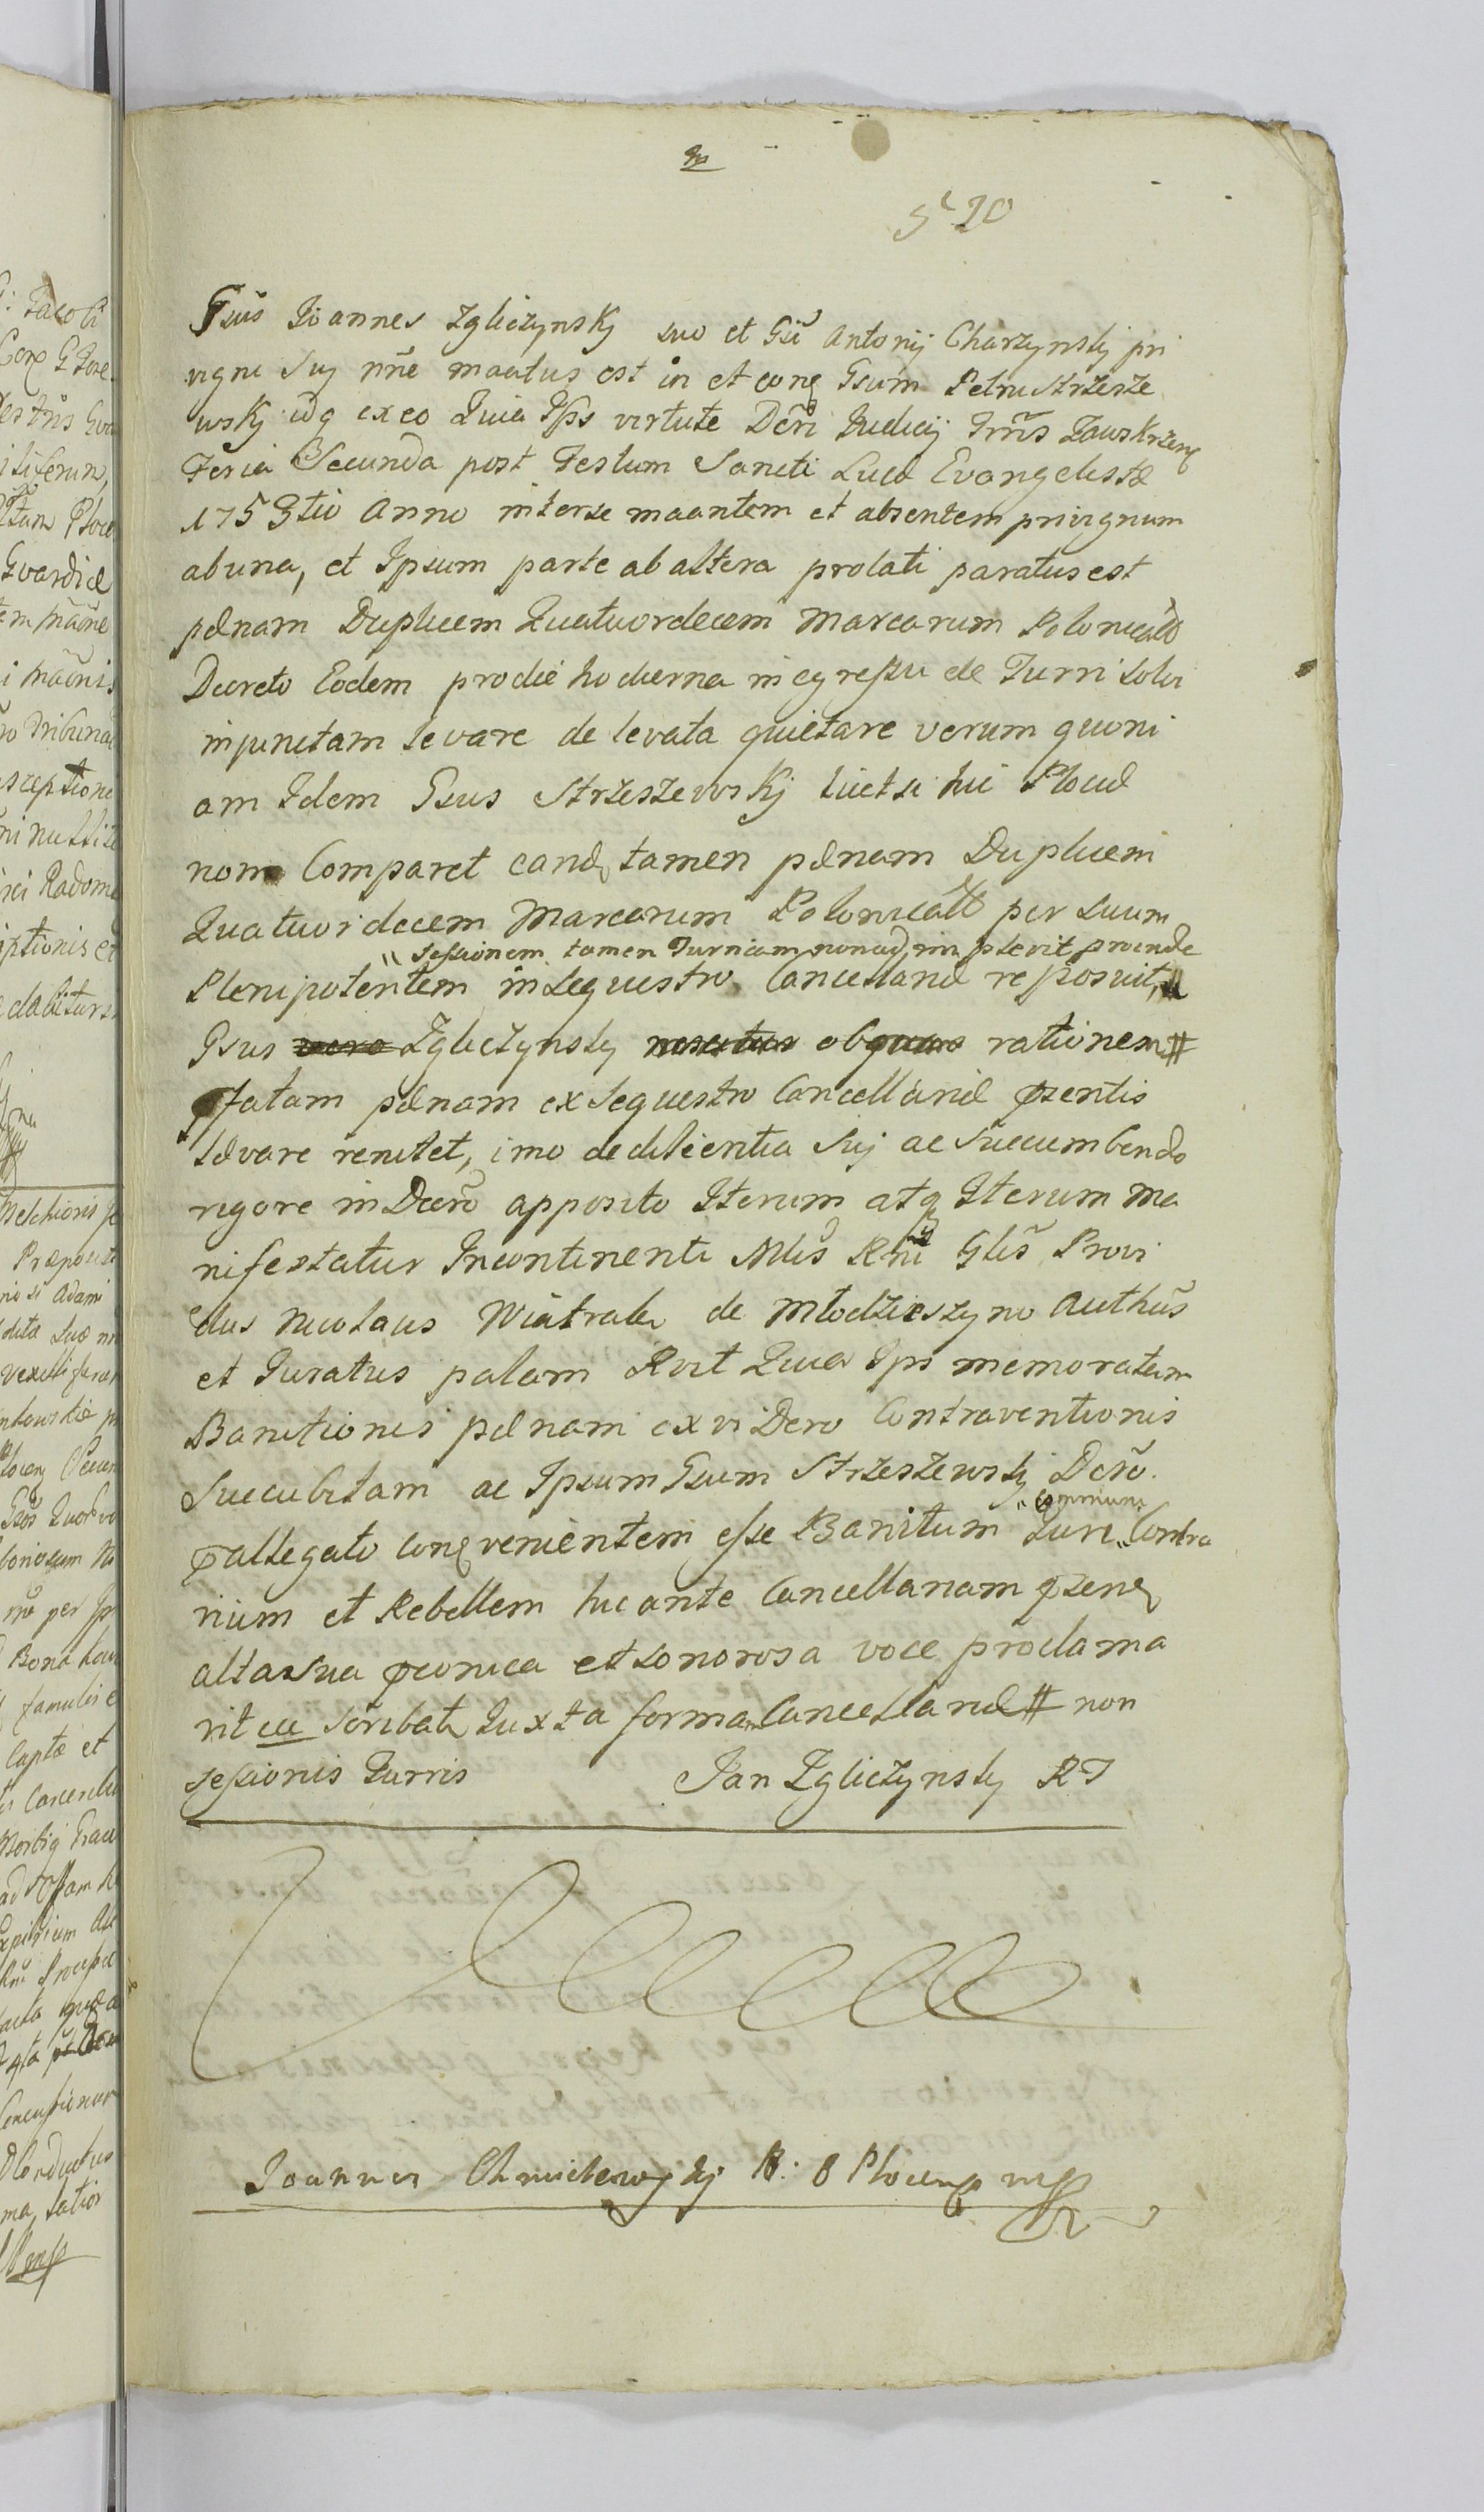 S 20
Gsus Joannes Zgliczynskj suo et Gsi Antonij Charzynskj pri
vigni Suj nne maatus est in et conq Gsum Petrum Strzesze
wskj idq ex eo Quia Ips virtute Dcri Judicij Trris Zawskrzenq
Feria Secunda post Festum Sancti Lucæ Evangelistæ
1753tio Anno inter se maantem et absentem privignum
ab una, et Ipsum parte ab altera prolati paratus est
pænam Duplicem Quatuordecem Marcarum Polonicalium
Decreto Eodem pro die hodierna in egressu de Turri solvi
injunctam levare de levata quietare verum quoni
am Idem Gsus Strzeszewskj licet se hic Plociæ
non Comparet eand tamen pænam Duplicem
Quatuordecem Marcarum Polonicali per Suum
" sessionem tamen Turriam non adimplevit proinde
Plenipotentem in Sequestro Cancellariæ reposuit, "
Gsus vero Zgliczynskj ob rationem #
pfatam pænam ex Sequestro Cancellariæ pzentis
Levare renitet, imo de dilientia Suj ac Succumbendo
rigore in Dcro apposito Iterum atq Iterum ma
nifestatur Incontinenti Mtis Rni Glis Provi
dus Nicolaus Wiatrak de Mlodzieszyno Authus
et Juratus palam Rvit Quia Ips memoratam
Banitionis pænam ex vi Dcro Contraventionis
Succubitam ac Ipsum Gsum Strzeszewskj Dcro.
pallegato conqvenientem esse Banitum Juri " communi " Contra
rium et Rebellem hic ante Cancellariam pzenq
alta sua pconica et sonorosa voce proclama
vit ut scribat Juxta formam Cancellariæ # non
sessionis Turris Jan Zgliczynskj RT
Joannes Chmielewskj R: B Plocenq mp